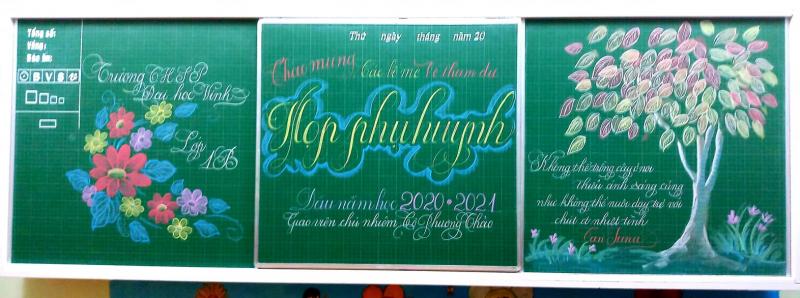 Tổng số:
Vắng:
Báo ăn:
B V S
Trường THSP
Đại học Vinh
Lớp 1B
Thứ ngày tháng năm 20
Chào mừng Các bố mẹ về tham dự
Họp phụ huynh
Đầu năm học 2020 • 2021
Giáo viên chủ nhiệm: Cô Phương Thảo
Không thể trồng cây ở nơi
thiếu ánh sáng cũng
như không thể nuôi dạy trẻ với
chút ít nhiệt tình
Can Jung